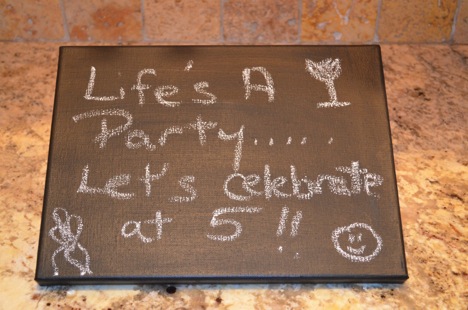 Life's A
Party.....
Let's celebrate
at 5!!